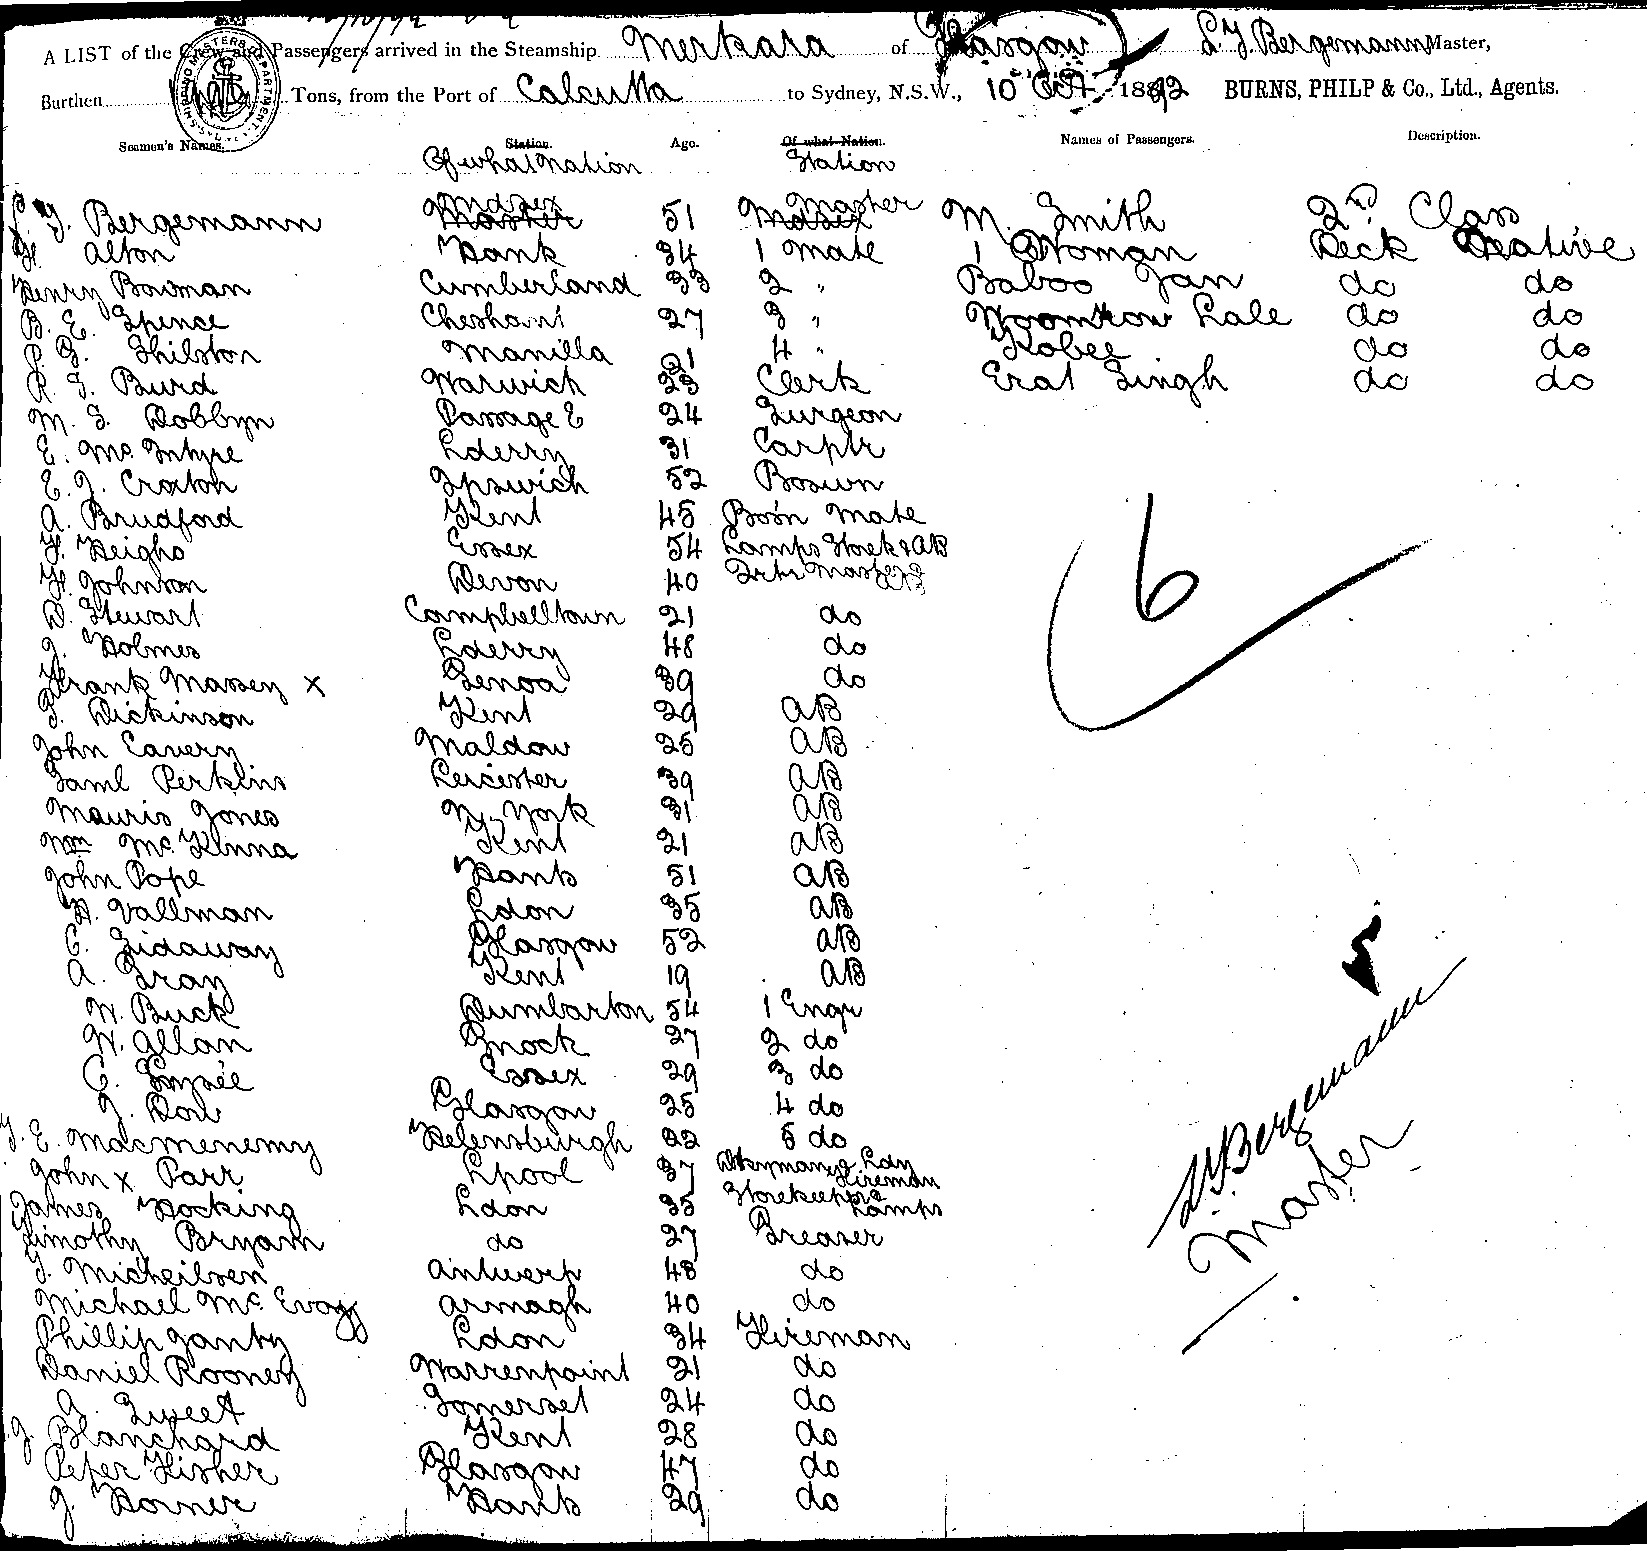 A LIST of the Crew and Passengers arrived in the Steamship Merkara of Glasgow L. J. Bergemann Master,
Burthen Tons, from the Port of Calcutta to Sydney, N.S.W., 10 Oct 1892 BURNS, PHILP & Co., Ltd., Agents.
Seamen's Names. Station. Age. Of what Nation. Names of Passengers. Description.
Of what Nation Station
Bergemann Mdsex 51 Master M. Smith 2nd Class
H. Alton Hants 34 1 Mate 1 Woman Deck Native
Henry Bowman Cumberland 33 2 " Baboo Jan do do
B. E. Spence Chesham 27 3 " Lale do do
Shilston Manilla 21 4 " Kobee do do
R. J. Burd Warwick 23 Clerk Erat Singh do do
M. S. Dobbyn Passage E 24 Surgeon
E. Mc Intyre Lderry 31 Carptr
E. J. Croxton Ipswich 52 Bosun
A. Brudford Kent 45 Bosn Mate
Heigho Essex 54 Lamps AB
H. Johnson Devon 40 Qrtr Master
D. Stewart Campbelltown 21 do
J. Holmes Lderry 48 do
Frank Massey x Genoa 39 do
Dickinson Kent 29 AB
John Eavery Maldon 25 AB
Saml Perkins Leicester 39 AB
Mauris Jones N. York 31 AB
Wm Mc Kenna Kent 21 AB
John Pope Hants 51 AB
H. Vallman Ldon 35 AB
C. Sidaway Glasgow 52 AB
A. Gray Kent 19 AB
W. Buck Dumbarton 54 1 Engr
W. Allan Gnock 27 2 do
C. Essex 29 3 do
J. Dow Glasgow 25 4 do
J. E. Macmenemy Helensburgh 22 5 do
John x Parr Lpool 37 Dkyman & Ldy Fireman
James Hocking Ldon 35 Storekeeper & Lamps
Timothy Bryam do 27 Greaser
Micheilsen Antwerp 48 do
Michael Mc Evoy Armagh 40 do
Phillip Ganty Ldon 34 Fireman
Daniel Rooney Warrenpoint 21 do
A. Sweet Somerset 24 do
J. Blanchard Kent 28 do
Peter Fisher Glasgow 47 do
J. Horner Hants 29 do
6
Bergemann
Master